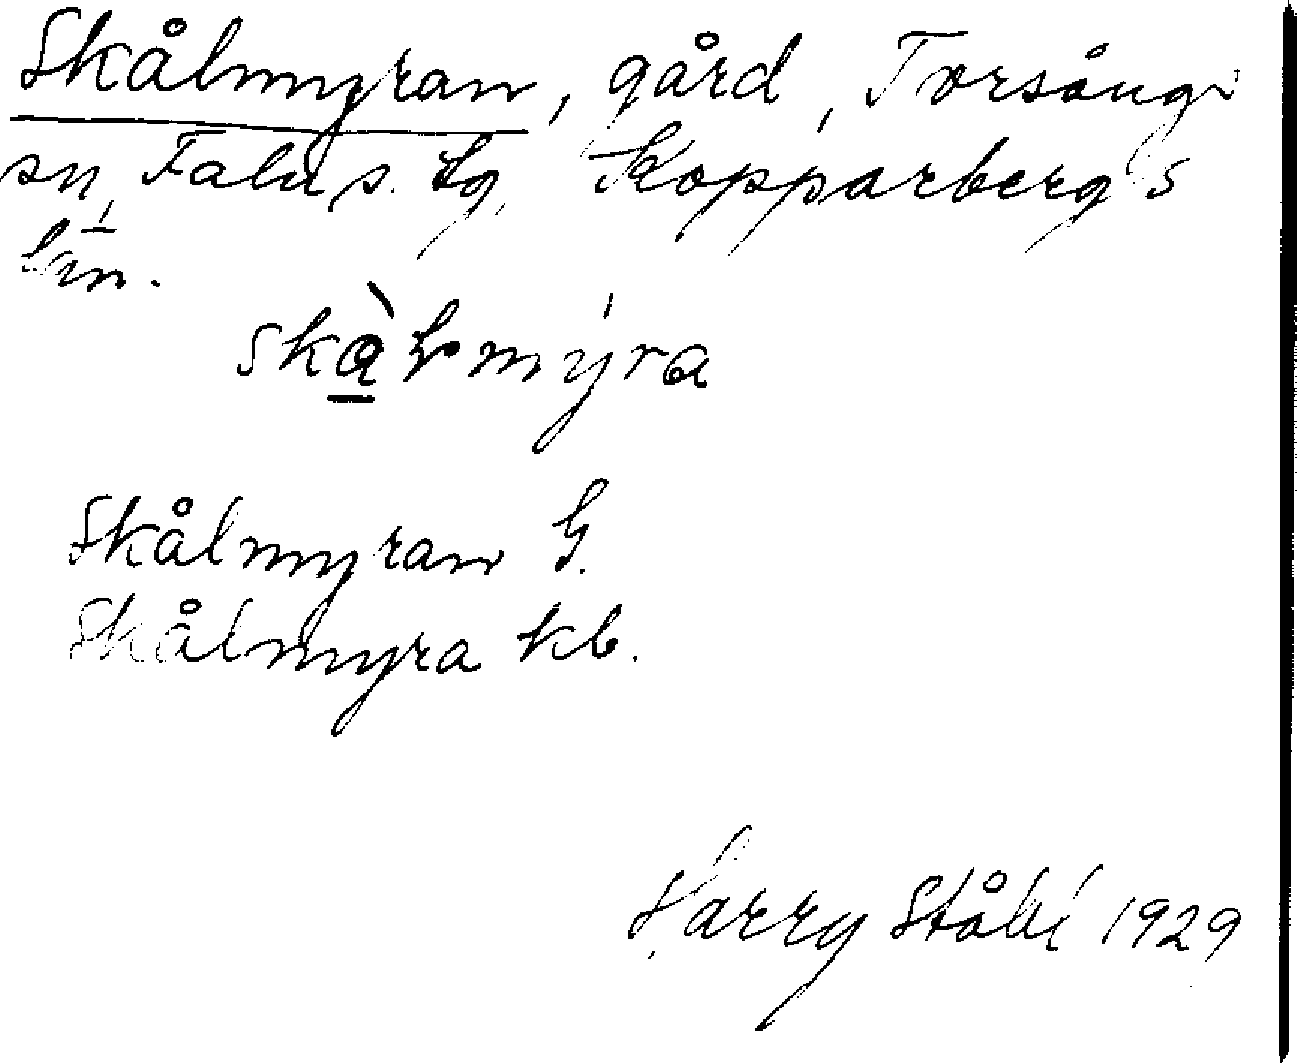 Skålmyran, gård, Torsångs
sn, Falu s. tg, Kopparbergs
län.
skàlmýra
Skålmyran G.
Skålmyra kb.
Harry Ståhl 1929